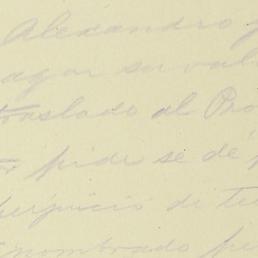 Alexandro
agar su val
traslado al Pro
pide se dé
perjuicio de te
nombrado pe